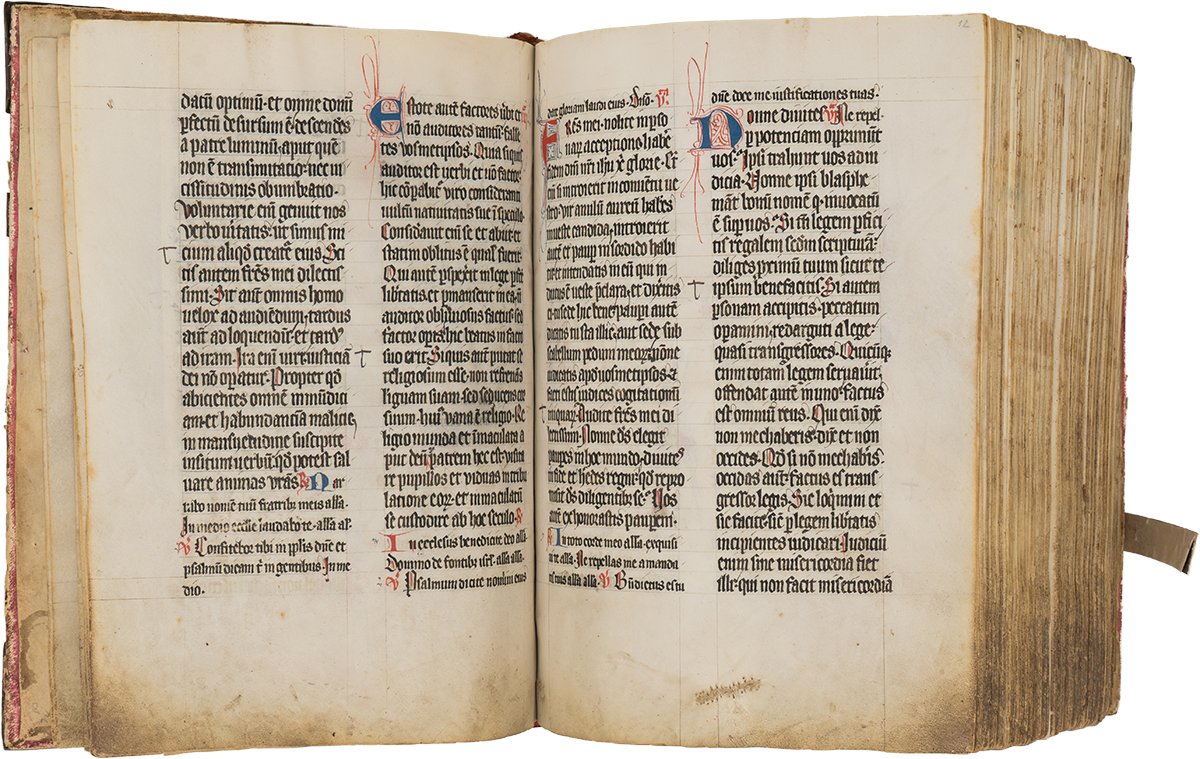 datū optimū · et omne donū
pfectū desursum ē · descendēs
a patre luminū · aput quē
non ē transmutatio · nec vi
cissitudinis obumbratio ·
Voluntarie eni genuit nos
verbo vitatis · ut simus ini
cium aliqd creature eius · Sci
tis autem frēs mei dilectis
simi · Sit aut omnis homo
velox ad audiendū · tardus
aut ad loquendū · et tardꝰ
ad iram · Ira eni viri iusticiā
dei nō opatur · Propter qd
abicientes omnē inmūdici
am et habundanciā malicie
in mansuetudine suscipite
insitum verbū · qd potest sal
vare animas vrās · R Nar
rabo nomē tuū fratribus meis alla ·
In medio ecclie laudabo te · alla al ·
V Confitebor tibi in pplis dne et
psalmū dicam t in gentibus · In me
dio ·
Estote autē factores verbi et
nō auditores tantū · falle
tes vosmetipsos · Quia siquis
auditor est verbi et nō factor
hic cōpabr viro consideranti
vultū nativitatis sue i speculo
Consideravit eni se et abiit et
statim oblitus ē qualis fuerit ·
Qui autē pspexit in lege pfec
libtatis et pmanserit in ea · nō
auditor obliviosus factus · sed
factor opis · hic beatus in facto
suo erit · Siquis aut putat se
religiosum esse · non refrenās
liguam suam · sed seducens cor
suum · huiꝰ vana ē religio · Re
ligio munda et imaculata a
put deū patrem hec est · visita
re pupillos et viduas in tribu
latione eoꝝ · et inmaculatū
se custodire ab hoc seculo · R
In ecclesiis benedicite deo alla
Domino de fontibus isrl · alla alla
V Psalmum dicite nomini eius
date gloriam laudi eius · Dnō · V
Frēs mei · nolite in pso
naꝝ acceptione habe
fidem dni nri ihu x glorie · Et
eni si introierit in conventū ve
stro · vir anulū aureū habēs
in veste candida · introierit
autē et paup in sordido habi
tu · et intendatis in eū qui in
dutus ē veste pclara · et dixitis
ei · tu sede hic bene · paupi autē
dicatis · tu sta illic · aut sede sub
scabellum pedum meoꝝ · nōne
iudicatis apd vosmetipsos · et
facti estis iudices cogitationū
iniquaꝝ · Audite frēs mei di
lectissimi · Nonne ds elegit
paupes in hoc mundo · divites
in fide et hedes regni · qd repro
misit ds diligentibus se · Vos
autē exhonorastis paupem ·
R In toto corde meo alla · exquisi
vi te alla · Ne repellas me a manda
tis tuis alla alla · V Bndictus es tu
dne doce me iustificationes tuas ·
Nonne divites V Ne repel ·
p potenciam opprimūt
vos · Ipsi trahunt vos ad iu
dicia · Nonne ipsi blasphe
mant bonū nomē q invocatū
ē sup vos · Si tn legem pfici
tis regalem scdm scripturā ·
diliges pximū tuum sicut te
ipsum benefacitis · Si autem
psonam accipitis · peccatum
opamini · redarguti a lege ·
quasi transgressores · Quicūq
enim totam legem servavit ·
offendat autē in uno · factus
est omniū reus · Qui eni dixit
non mechaberis · dixit et non
occides · Qd si nō mechabis ·
occidas aut · factus es trans
gressor legis · Sic loqmini et
sic facite · sicut p legem libtatis
incipientes iudicari · Iudiciū
enim sine misericordia fiet
illi · qui non facit misericordiā
12